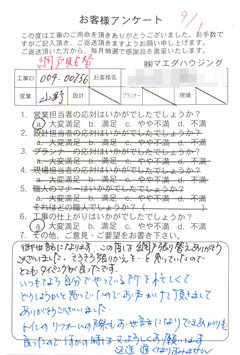 お客様アンケート
9/1
この度は工事のご用命を頂きありがとうございました。お手数で
すがご記入頂き、ご返送頂きますようお願い申し上げます。
ご返送頂いた方から、毎月抽選で感謝品を進呈いたします。
網戸張替
㈱マエダハウジング
工事ID 009-00756 お客様名
営業 山野 設計 プランナー 現場
1. 営業担当者の応対はいかがでしたでしょうか?
a. 大変満足 b. 満足 c. やや不満 d. 不満
2. 設計担当者の応対はいかがでしたでしょうか?
a. 大変満足 b. 満足 c. やや不満 d. 不満
3. プランナーの応対はいかがでしたでしょうか?
a. 大変満足 b. 満足 c. やや不満 d. 不満
4. 現場担当者の応対はいかがでしたでしょうか?
a. 大変満足 b. 満足 c. やや不満 d. 不満
5. 職人のマナーはいかがでしたでしょうか?
a. 大変満足 b. 満足 c. やや不満 d. 不満
それはどの職人でしょうか?(
6. 工事の仕上がりはいかがでしたでしょうか?
a. 大変満足 b. 満足 c. やや不満 d. 不満
7. その他、ご意見・ご要望をお書き下さい。
御世話になります。この度は網戸張り替えありがとう
ございました。そろそろ張りかえを…と思っていたので
とてもタイミングが良かったです。
いつもなら自分でやっているのですが忙しくて
どうしようかと思っていたのでお声かけて頂きまして
ありがとうございました
トイレのリフォームの際もお世話になりできあがりも
良かったので何かの時はまたよろしくお願いします
返送遅くなりすみません